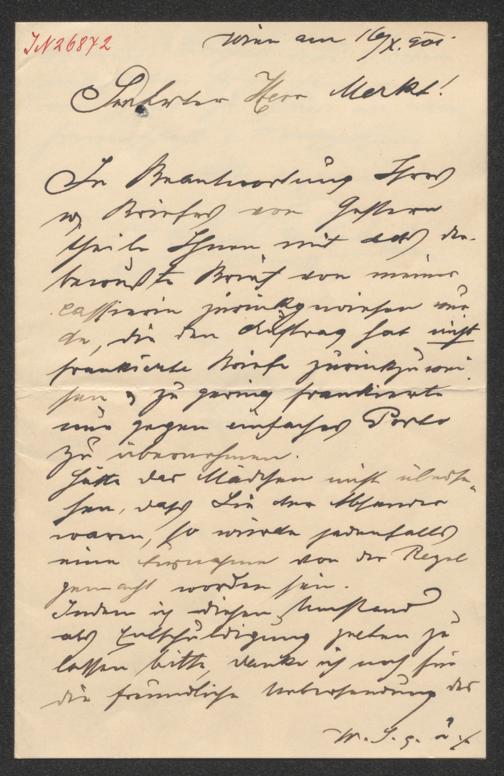 IN 26872
Wien am 16/X. 901
Geehrter Herr Merkt!
In Beantwortung Ihres
w. Briefes von Gestern
theile Ihnen mit das der
bewußte Brief von meiner
Cassierin zurückgewiesen wur-
de, die den Auftrag hat nicht
frankierte Briefe zurückzuwei-
sen, zu gering frankierte
nur gegen einfaches Porto
zu übernehmen.
Hätte das Mädchen nicht überse-
hen, dass Sie der Absender
waren, so würde jedenfalls
eine Ausnahme von der Regel
gemacht worden sein.
Indem ich diesen Umstand
als Entschuldigung gelten zu
lassen bitte, danke ich noch für
die freundliche Uebersendung des